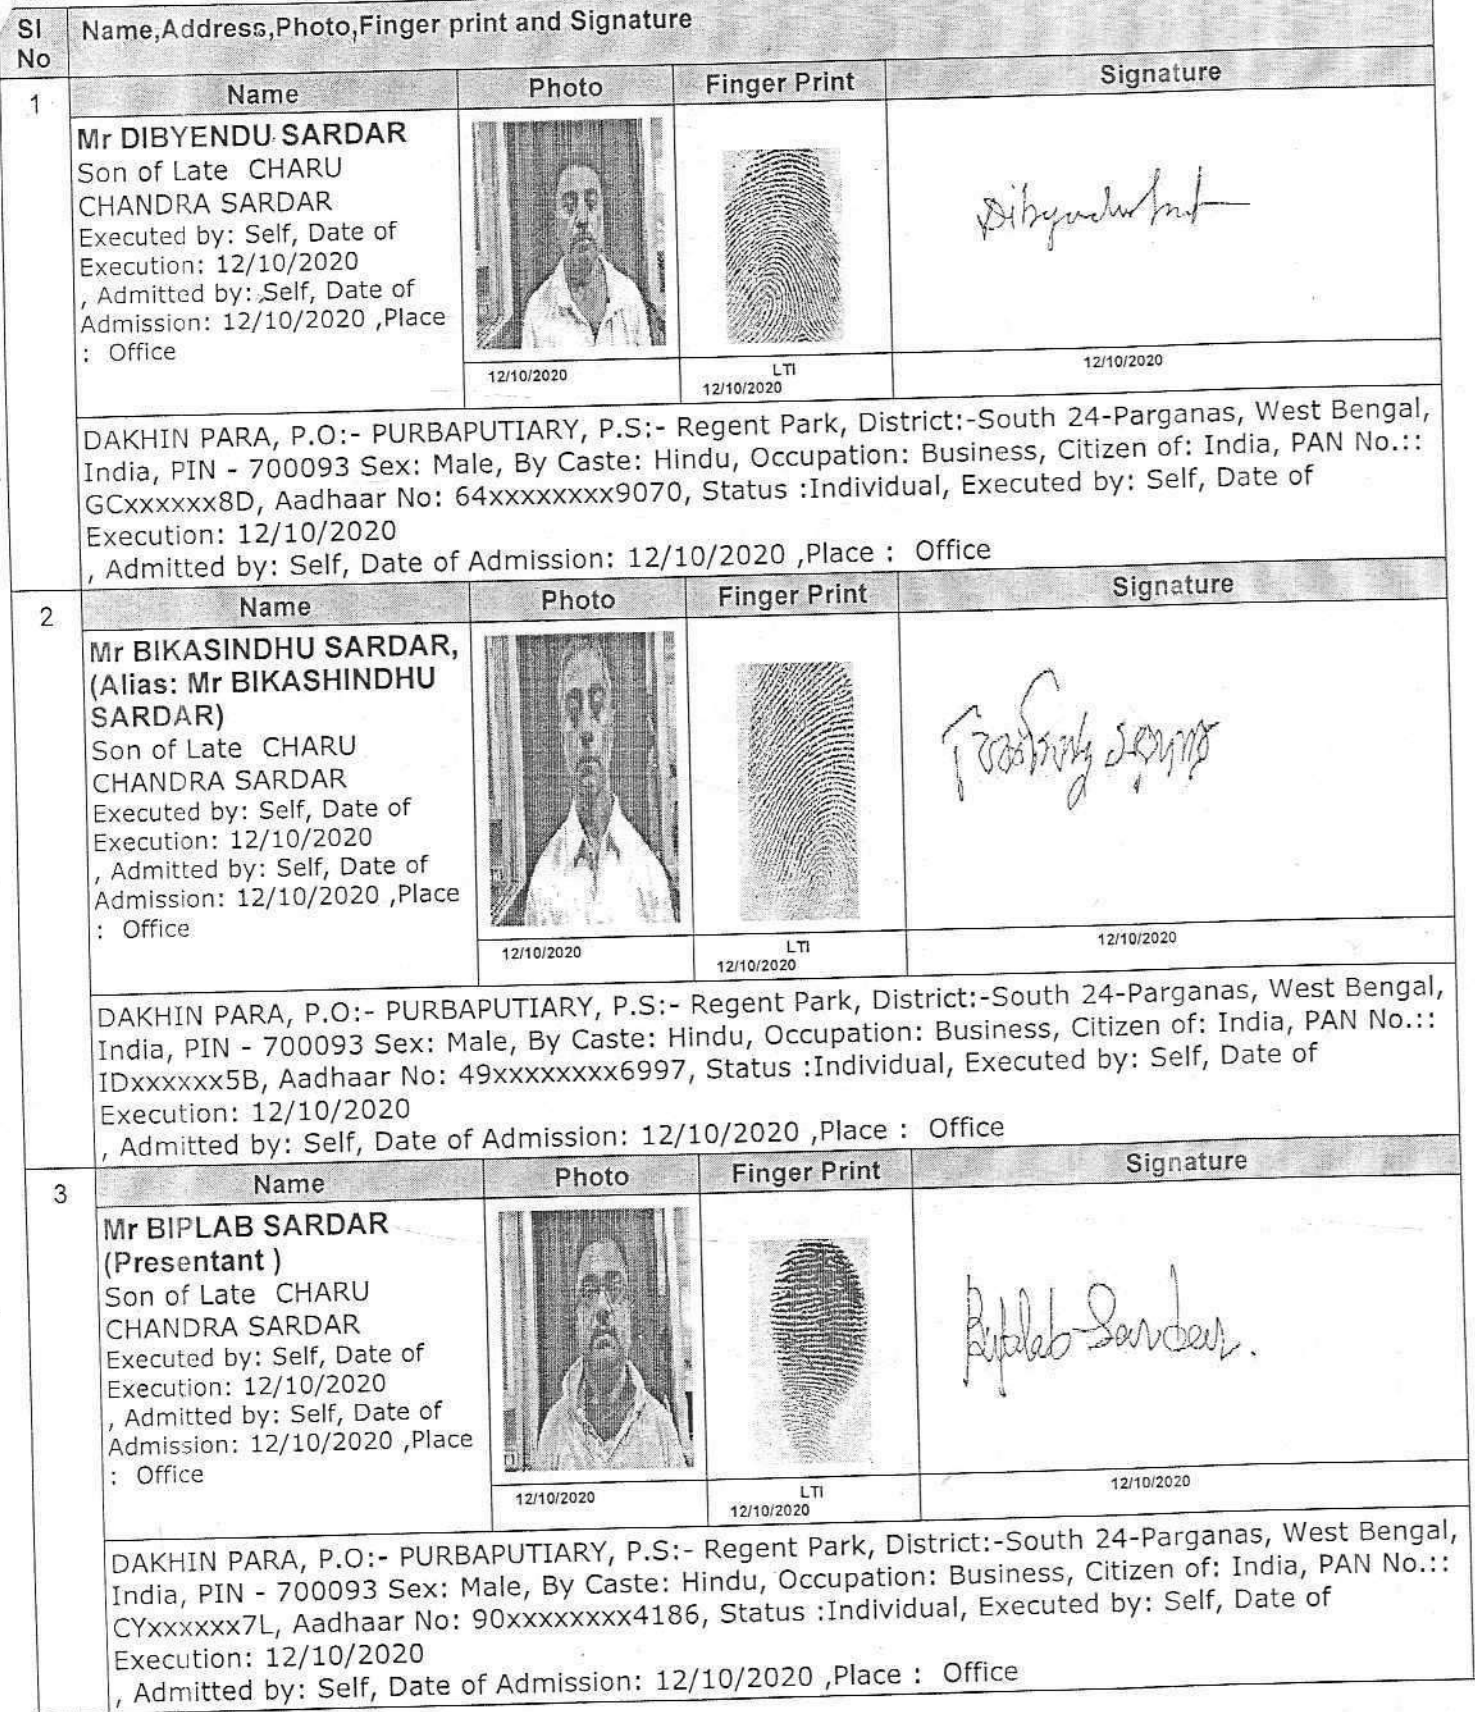 Sl No
Name,Address,Photo,Finger print and Signature
1
Name
Photo
Finger Print
Signature
Mr DIBYENDU SARDAR
Son of Late CHARU
CHANDRA SARDAR
Executed by: Self, Date of
Execution: 12/10/2020
, Admitted by: Self, Date of
Admission: 12/10/2020 ,Place
: Office
12/10/2020
LTI
12/10/2020
12/10/2020
DAKHIN PARA, P.O:- PURBAPUTIARY, P.S:- Regent Park, District:-South 24-Parganas, West Bengal,
India, PIN - 700093 Sex: Male, By Caste: Hindu, Occupation: Business, Citizen of: India, PAN No.::
GCxxxxxx8D, Aadhaar No: 64xxxxxxxx9070, Status :Individual, Executed by: Self, Date of
Execution: 12/10/2020
, Admitted by: Self, Date of Admission: 12/10/2020 ,Place : Office
2
Name
Photo
Finger Print
Signature
Mr BIKASINDHU SARDAR,
(Alias: Mr BIKASHINDHU
SARDAR)
Son of Late CHARU
CHANDRA SARDAR
Executed by: Self, Date of
Execution: 12/10/2020
, Admitted by: Self, Date of
Admission: 12/10/2020 ,Place
: Office
12/10/2020
LTI
12/10/2020
12/10/2020
DAKHIN PARA, P.O:- PURBAPUTIARY, P.S:- Regent Park, District:-South 24-Parganas, West Bengal,
India, PIN - 700093 Sex: Male, By Caste: Hindu, Occupation: Business, Citizen of: India, PAN No.::
IDxxxxxx5B, Aadhaar No: 49xxxxxxxx6997, Status :Individual, Executed by: Self, Date of
Execution: 12/10/2020
, Admitted by: Self, Date of Admission: 12/10/2020 ,Place : Office
3
Name
Photo
Finger Print
Signature
Mr BIPLAB SARDAR
(Presentant )
Son of Late CHARU
CHANDRA SARDAR
Executed by: Self, Date of
Execution: 12/10/2020
, Admitted by: Self, Date of
Admission: 12/10/2020 ,Place
: Office
Biplab Sardar.
12/10/2020
LTI
12/10/2020
12/10/2020
DAKHIN PARA, P.O:- PURBAPUTIARY, P.S:- Regent Park, District:-South 24-Parganas, West Bengal,
India, PIN - 700093 Sex: Male, By Caste: Hindu, Occupation: Business, Citizen of: India, PAN No.::
CYxxxxxx7L, Aadhaar No: 90xxxxxxxx4186, Status :Individual, Executed by: Self, Date of
Execution: 12/10/2020
, Admitted by: Self, Date of Admission: 12/10/2020 ,Place : Office